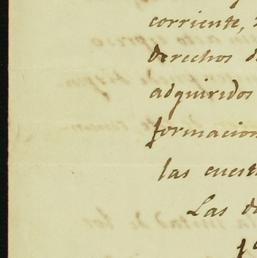 corriente,
derechos d
adquiridos
formacion
las cuest
Las d